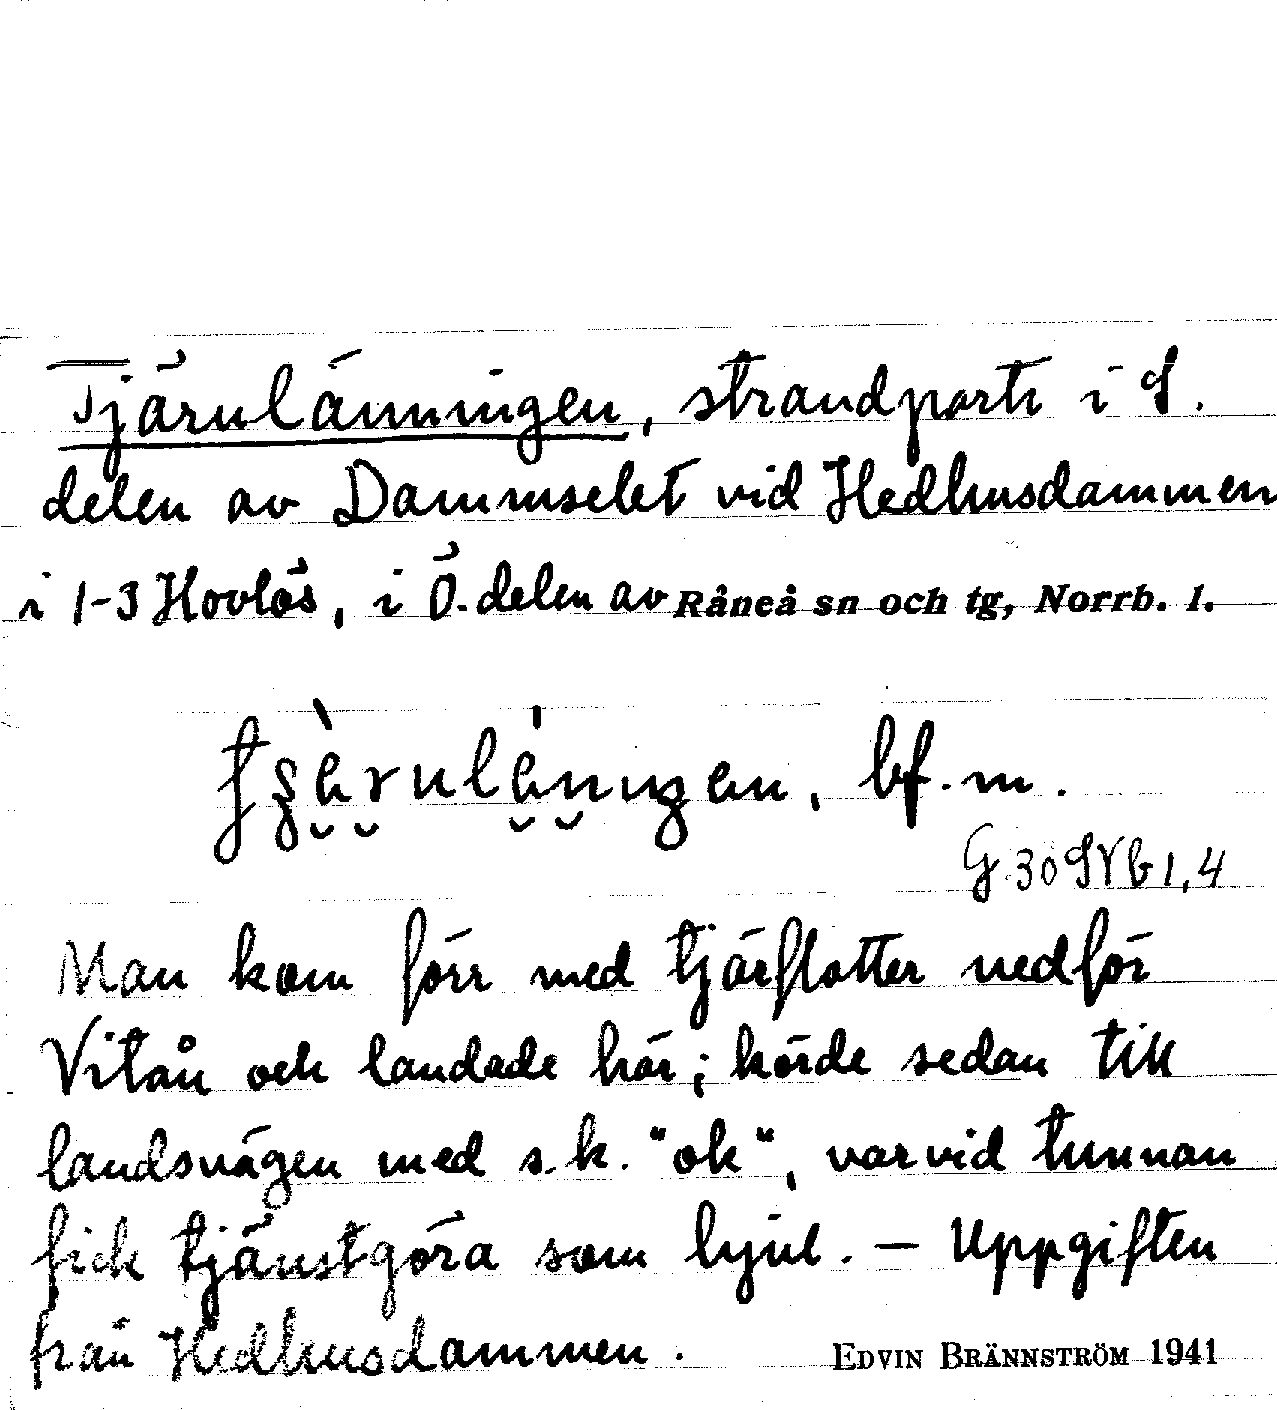 Tjärulänningen, strandparti i S.
delen av Dammselet vid Hedhusdammen
i 1-3 Hovlös, i Ö. delen av Råneå sn och tg, Norrb. l.
bf. m.
G 30 SV b 1,4
Man kom förr med tjärflottor nedför
Vitån och landade här; körde sedan till
landsvägen med s.k. "ok", varvid tunnan
fick tjänstgöra som hjul. — Uppgiften
från Hedhusdammen.
EDVIN BRÄNNSTRÖM 1941